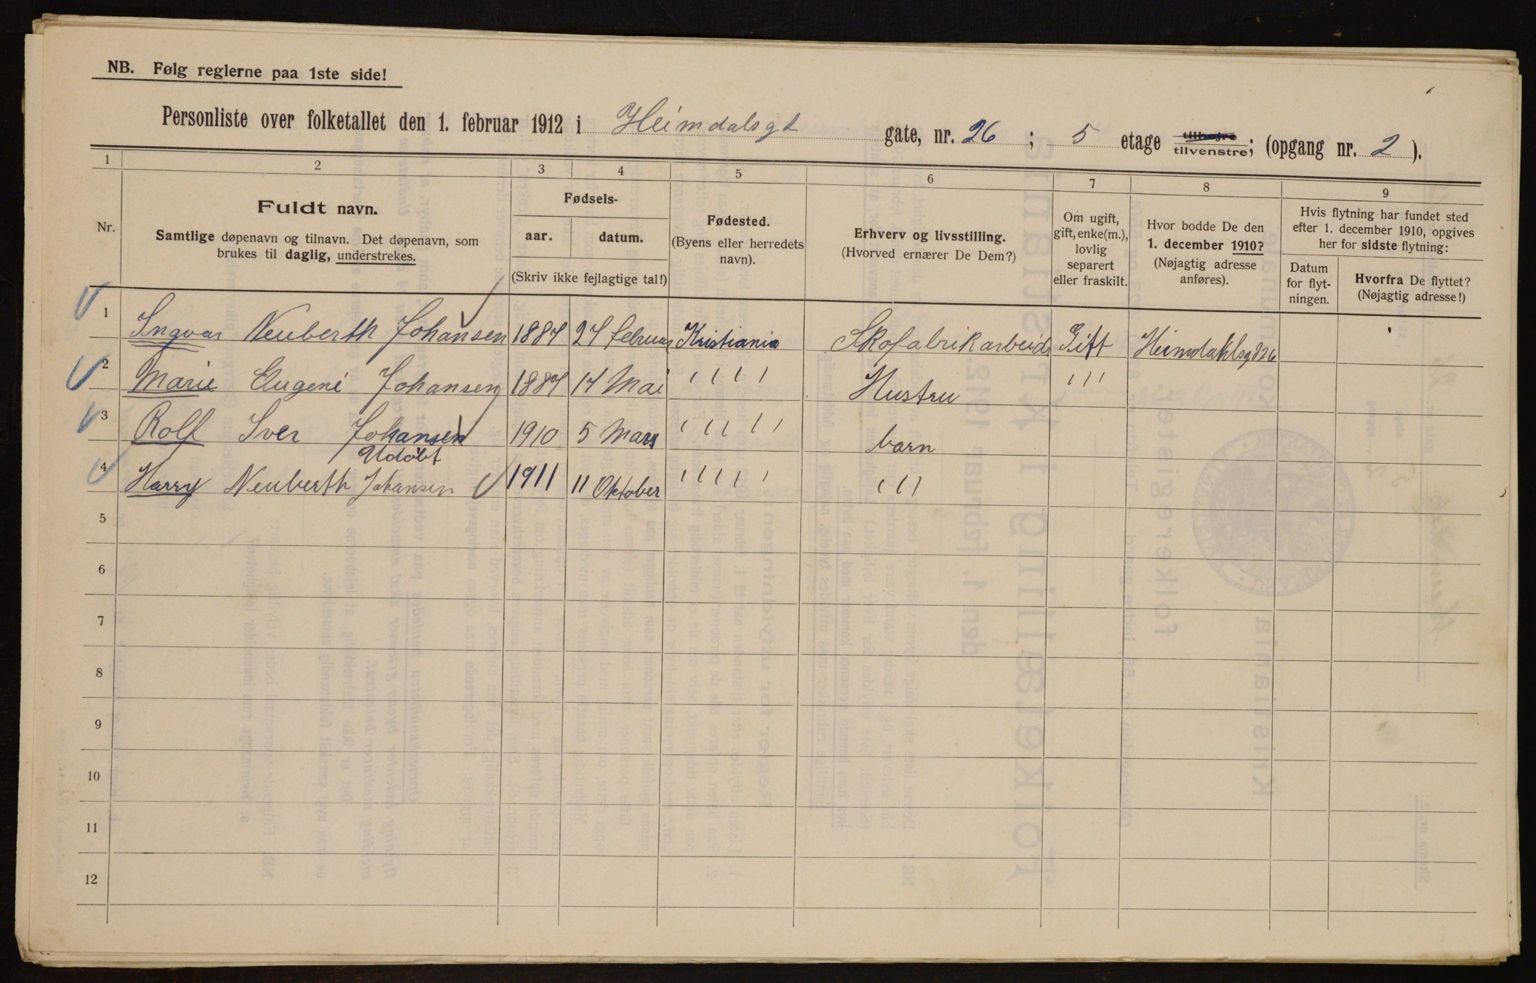 NB. Følg reglerne paa 1ste side!
Personliste over folketallet den 1. februar 1912 i Heimdalsgt gate, nr. 26 ; 5 etage tilhøjre tilvenstre; (opgang nr. 2 ).
1 2 3 4 5 6 7 8 9
Nr.
Fuldt navn.
Samtlige døpenavn og tilnavn. Det døpenavn, som
brukes til daglig, understrekes.
Fødsels-
aar. datum.
(Skriv ikke fejlagtige tal!)
Fødested.
(Byens eller herredets
navn).
Erhverv og livsstilling.
(Hvorved ernærer De Dem?)
Om ugift,
gift, enke(m.),
lovlig
separert
eller fraskilt.
Hvor bodde De den
1. december 1910?
(Nøjagtig adresse
anføres).
Hvis flytning har fundet sted
efter 1. december 1910, opgives
her for sidste flytning:
Datum
for flyt-
ningen.
Hvorfra De flyttet?
(Nøjagtig adresse!)
1 Ingvar Neuberth Johansen 1887 27 februar Kristiania Skofabrikarbeide Gift Heimdahlsgd 26
2 Marie Eugeni Johansen 1887 17 Mai " " " " Hustru " " "
3 Rolf Iver Johansen 1910 5 Mars " " " " barn
Udöbt
4 Harry Neuberth Johansen 1911 11 Oktober " " " " " " "
5
6
7
8
9
10
11
12